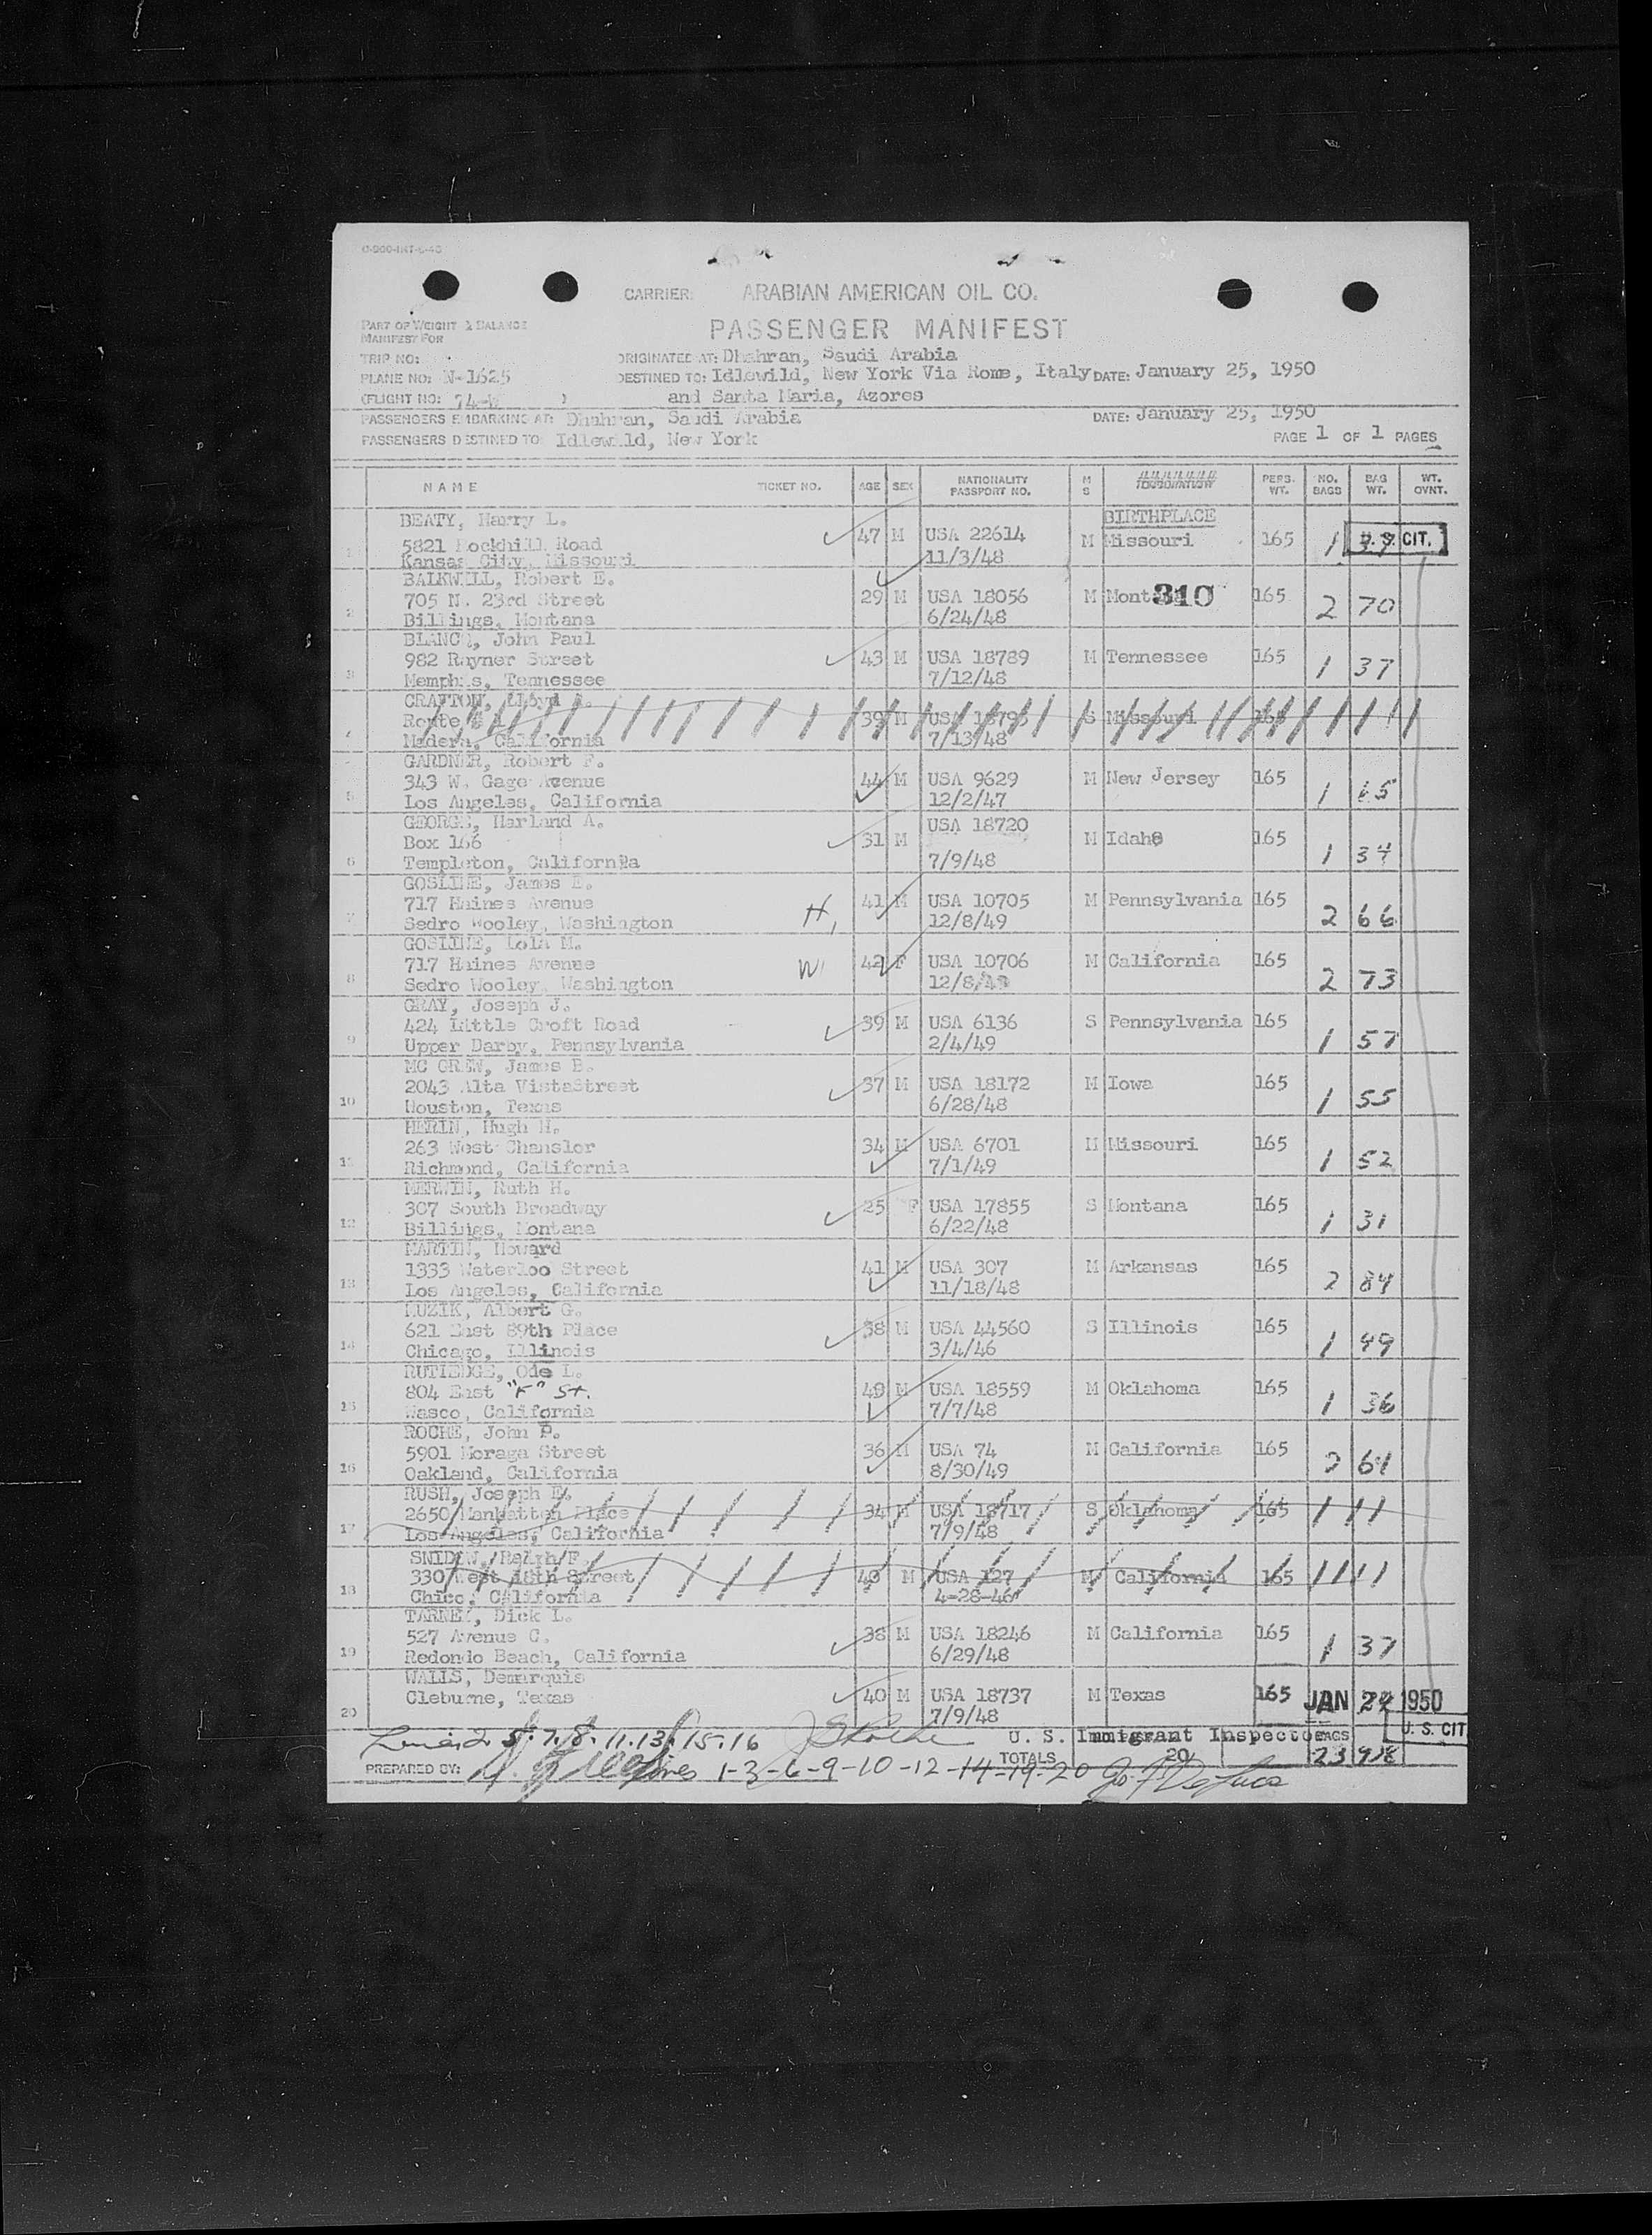 CARRIER: ARABIAN AMERICAN OIL CO.
PART OF WEIGHT & BALANCE
MANIFEST FOR
PASSENGER MANIFEST
TRIP NO:
ORIGINATED AT: Dhahran, Saudi Arabia
PLANE NO: N-1625
DESTINED TO: Idlewild, New York Via Rome, Italy DATE: January 25, 1950
(FLIGHT NO: 74-W )
and Santa Maria, Azores
PASSENGERS EMBARKING AT: Dhahran, Saudi Arabia DATE: January 25, 1950
PASSENGERS DESTINED TO: Idlewild, New York PAGE 1 OF 1 PAGES
NAME TICKET NO. AGE SEX NATIONALITY PASSPORT NO. M S PERS. WT. NO. BAGS BAG WT. WT. OVNT.
BIRTHPLACE
BEATY, Harry L.
1 5821 Rockhill Road 47 M USA 22614 M Missouri 165 1 U. S. CIT.
Kansas City, Missouri 11/3/48
BALKWILL, Robert E.
2 705 N. 23rd Street 29 M USA 18056 M Mont 310 165 2 70
Billings, Montana 6/24/48
John Paul
3 982 Rayner Street 43 M USA 18789 M Tennessee 165 1 37
Memphis, Tennessee 7/12/48
CRAFTON, Lloyd
4 Route 39 M USA M S Missouri 165
Madera, California 7/13/48
GARDNER, Robert F.
5 343 W. Gage Avenue 44 M USA 9629 M New Jersey 165 1
Los Angeles, California 12/2/47
GEORGE, Harland A. USA 18720
6 Box 166 31 M M Idaho 165 1 34
Templeton, California 7/9/48
GOSLINE, James E.
7 717 Haines Avenue H, 41 M USA 10705 M Pennsylvania 165 2 66
Sedro Wooley, Washington 12/8/49
GOSLINE, Lola M.
8 717 Haines Avenue W 42 F USA 10706 M California 165 2 73
Sedro Wooley, Washington 12/8/49
GRAY, Joseph J.
9 424 Little Croft Road 39 M USA 6136 S Pennsylvania 165 1 57
Upper Darby, Pennsylvania 2/4/49
MC GREW, James B.
10 2043 Alta VistaStreet 37 M USA 18172 M Iowa 165 1 55
Houston, Texas 6/28/48
HERIN, Hugh H.
11 263 West Chanslor 34 M USA 6701 M Missouri 165 1 52
Richmond, California 7/1/49
MERWIN, Ruth H.
12 307 South Broadway 25 F USA 17855 S Montana 165 1 31
Billings, Montana 6/22/48
MARTIN, Howard
13 1333 Waterloo Street 41 M USA 307 M Arkansas 165 2 84
Los Angeles, California 11/18/48
MUZIK, Albert G.
14 621 East 89th Place 38 M USA 44560 S Illinois 165 1 49
Chicago, Illinois 3/4/46
RUTLEDGE, Ode L.
15 804 East "F" St. 49 M USA 18559 M Oklahoma 165 1 36
Wasco, California 7/7/48
ROCHE, John P.
16 5901 Moraga Street 36 M USA 74 M California 165 2 64
Oakland, California 8/30/49
RUSH, Joseph E.
17 2650 Manhatten Place 34 M USA 18717 S Oklahoma 165
Los Angeles, California 7/9/48
SNIDOW, Ralph F.
18 330 West 18th Street 40 M USA 127 M California 165
Chico, California 4-28-46
Dick L.
19 527 Avenue C. 38 M USA 18246 M California 165 1 37
Redondo Beach, California 6/29/48
WALLS, Demarquis
20 Cleburne, Texas 40 M USA 18737 M Texas 165 JAN 1950
7/9/48
Lines 2. 5. 7. 8. 11. 13. 15. 16 U. S. Immigrant Inspector BAGS U. S. CIT
TOTALS 20 23 918
PREPARED BY: Lines 1-3-6-9-10-12-14-19-20